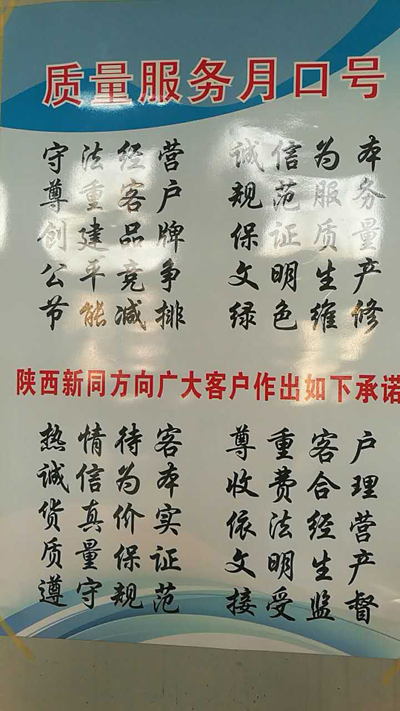 质量服务月口号
守法经营 诚信为本
尊重客户 规范服务
创建品牌 保证质量
公平竞争 文明生产
节能减排 绿色维修
陕西新同方向广大客户作出如下承诺
热情待客 尊重客户
诚信为本 收费合理
货真价实 依法经营
质量保证 文明生产
遵守规范 接受监督